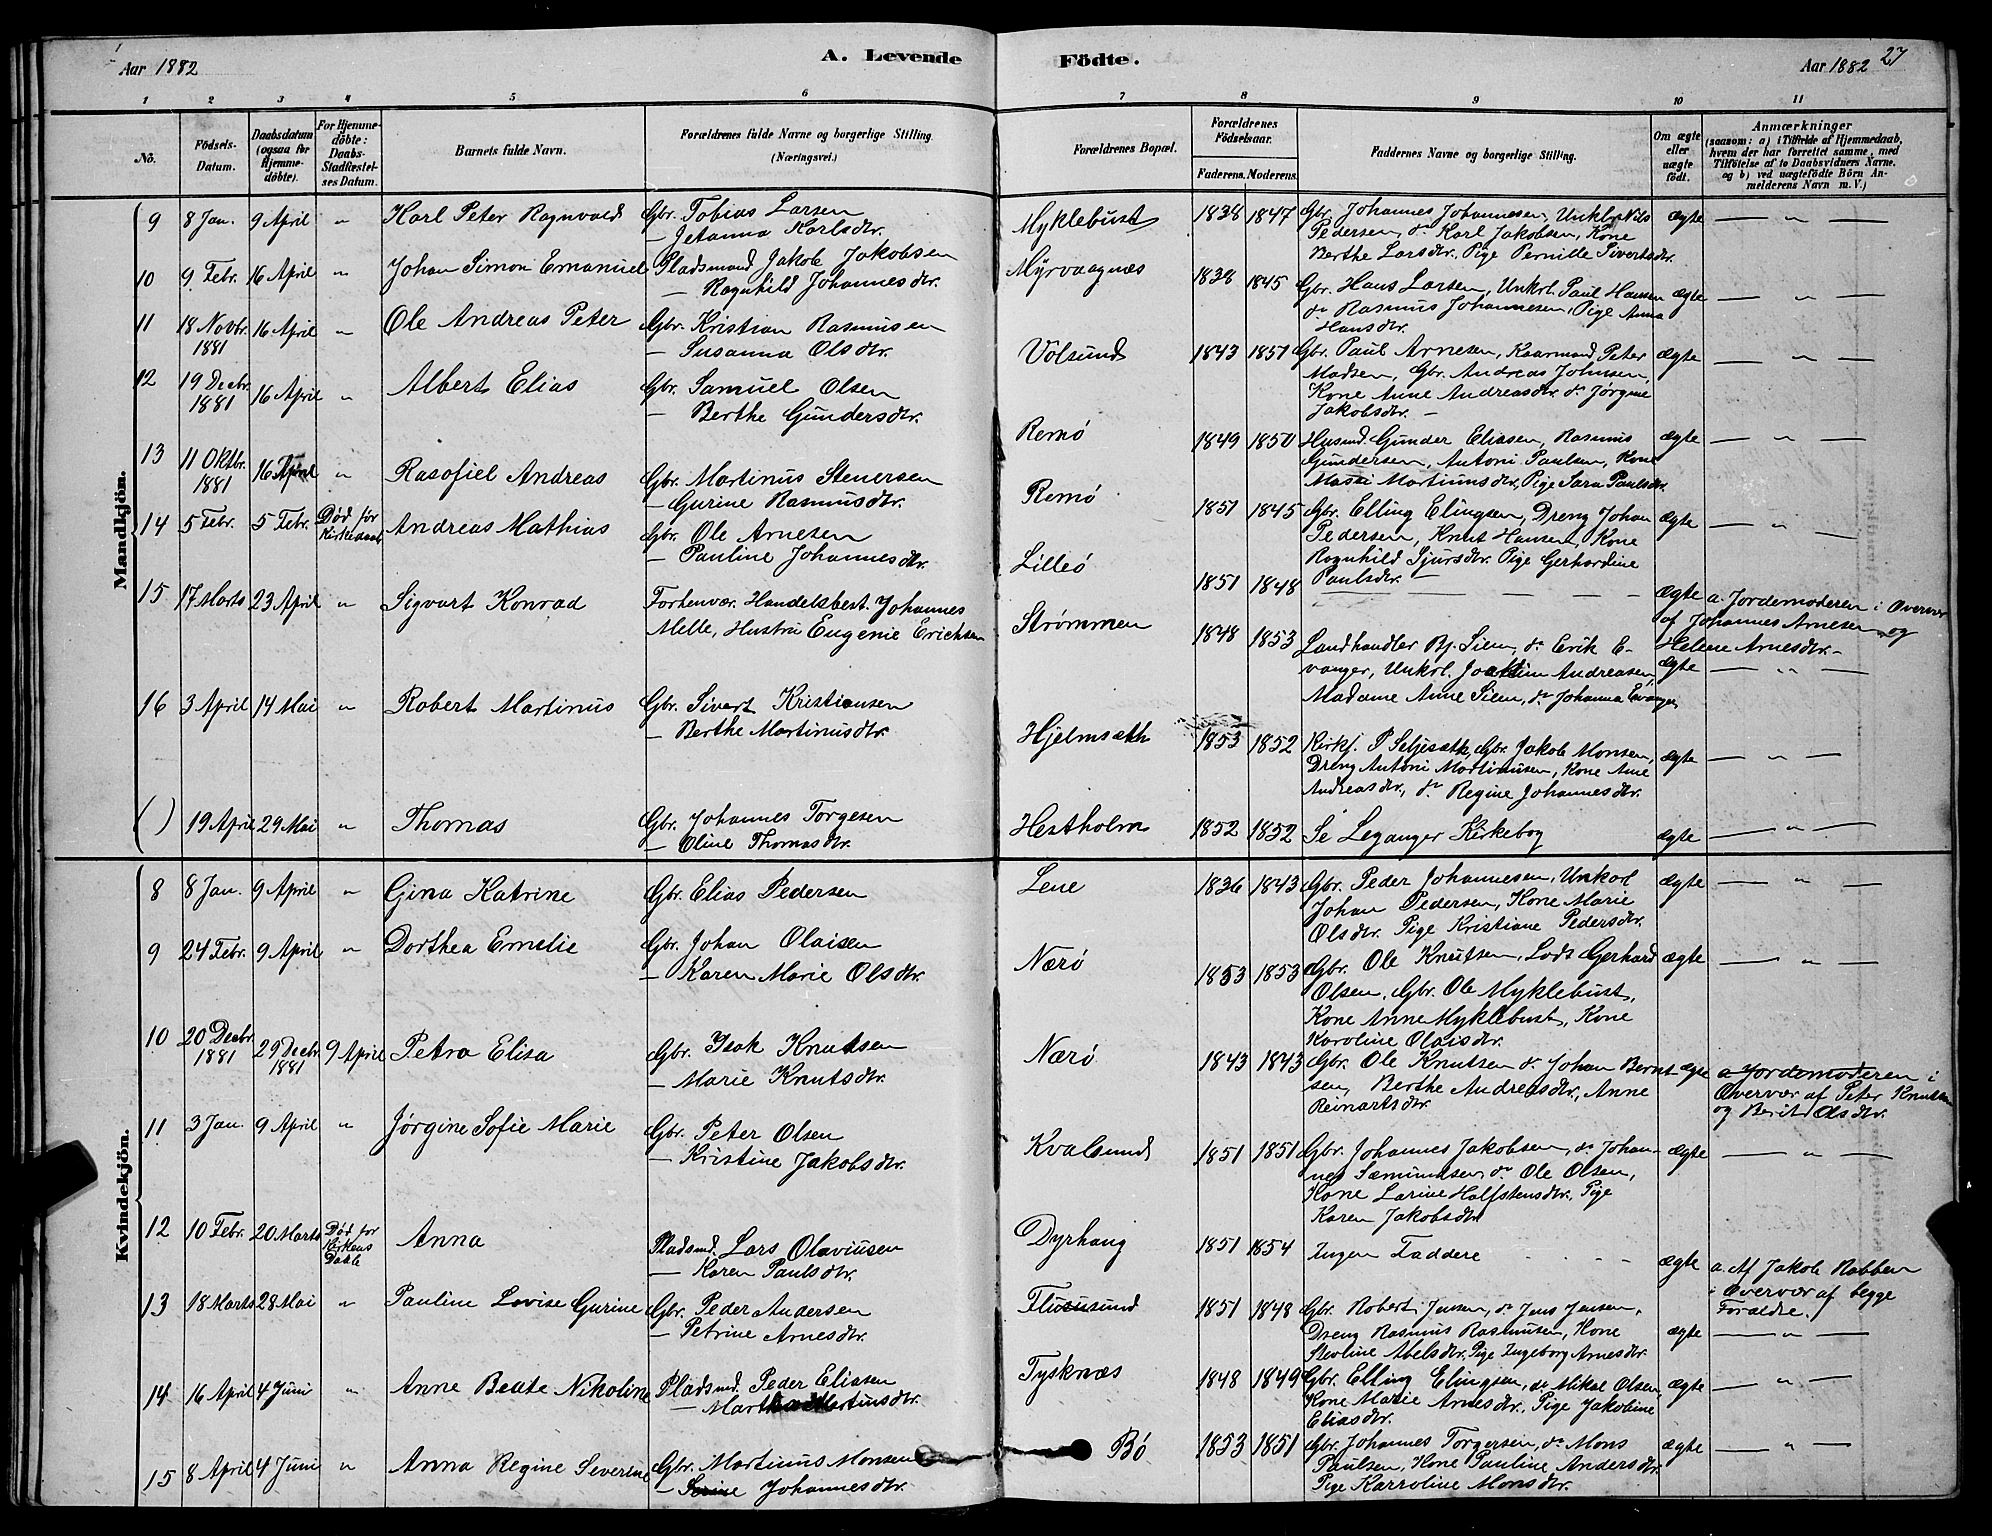 Aar 1882
A. Levende
Födte.
Aar 1882
27
1 2 3 4 5 6 7 8 9 10 11
No.
Födsels-Datum.
Daabsdatum (ogsaa for Hjemme-döbte).
For Hjemme-döbte: Daabs-Stadfæstel-ses Datum.
Barnets fulde Navn.
Forældrenes fulde Navne og borgerlige Stilling. (Næringsvei.)
Forældrenes Bopæl.
Forældrenes Födselsaar.
Faderens. Moderens.
Faddernes Navne og borgerlige Stilling.
Om ægte eller uægte födt.
Anmærkninger
(saasom: a) i Tilfælde af Hjemmedaab, hvem der har forrettet samme, med Tilföielse af to Daabsvidners Navne, og b) ved uægtefödte Börn An-melderens Navn m. V.)
Mandkjön.
9 8 Jan. 9 April " Karl Peter Ragnvald Gbr. Tobias Larsen
— Jetanna Karlsdtr.
Myklebust 1838 1847 Gbr. Johannes Johannesen, Unkbr Nils ægte — " —
Pedersen, do Karl Jakobsen, Kone
Berthe Larsdtr, Pige Pernille Sivertsdtr.
10 9 Febr. 16 April " Johan Simon Emanuel Pladsmand Jakob Jakobsen
— Ragnhild Johannesdtr.
Myrvaagnes 1838 1845 Gbr. Hans Larsen, Unkrl. Paul Hansen ægte — " —
do Rasmus Johannesen, Pige Anna
Hansdtr.
11 18 Novbr. 1881 16 April " Ole Andreas Peter Gbr. Kristian Rasmussen
— Susanna Olsdtr.
Volsund 1843 1851 Gbr. Paul Arnesen, Kaarmand Peter ægte — " —
Madsen, Gbr. Andreas Johnsen,
Kone Anne Andreasdtr. do Jørgine
Jakobsdtr. —
12 19 Decbr. 1881 16 April " Albert Elias Gbr. Samuel Olsen
— Berthe Gundersdtr.
Remö 1849 1850 Husmd. Gunder Eliasen, Rasmus ægte — " —
Gundersen, Antoni Paulsen, Kone
Massi Martinusdtr, Pige Sara Paulsdtr.
13 11 Oktbr. 1881 16 April " Rasofiel Andreas Gbr. Martinus Stenersen
— Gurine Rasmusdtr.
Remö 1851 1845 Gbr. Elling Elingsen, Dreng Johan ægte — " —
Pedersen, Knut Hansen, Kone
Ragnhild Sjursdtr. Pige Gerhardine
Paulsdtr. —
14 5 Febr. 5 Febr. Død før Kirkedaab Andreas Mathias Gbr. Ole Arnesen
— Pauline Johannesdtr.
Lilleö 1851 1848 — — — ægte a. Jordemoderen i Overvær
af Johannes Arnesen og
Helene Arnesdtr. —
15 17 Marts 23 April " Sigvart Konrad Forhenvær. Handelsbest. Johannes
Melle, Hustru Eugenie Erichsen
Strømmen 1848 1853 Landhandler Bj. Siem, do Erik E- ægte — " —
vanger, Unkrl. Joakim Andreasen,
Madame Anne Siem, do Johanna Evanger
16 3 April 14 Mai " Robert Martinus Gbr. Sivert Kristiansen
— Berthe Martinusdtr.
Hjelmsæth 1853 1852 Kirkj. P Seljesæth, Gbr. Jakob Monsen, ægte — " —
Dreng Antoni Martinusen, Kone Ane
Andreasdtr, do Regine Johannesdtr.
( ) 19 April 29 Mai " Thomas Gbr. Johannes Torgesen
— Oline Thomasdtr.
Hestholm 1852 1852 Se Leganger Kirkebog ægte — " —
Kvindekjön.
8 8 Jan. 9 April " Gina Katrine Gbr. Elias Pedersen
Lene 1836 1843 Gbr. Peder Johannesen, Unkarl ægte — " —
Johan Pedersen, Kone Marie
Olsdtr. Pige Kristiane Pedersdtr.
9 24 Febr. 9 April " Dorthea Emelie Gbr. Johan Olaisen
— Karen Marie Olsdtr.
Nærö 1853 1853 Gbr. Ole Knutsen, Lods Gerhard ægte — " —
Olsen, Gbr. Ole Myklebust,
Kone Anne Myklebust, Kone
Karoline Olaisdtr.
10 20 Decbr. 1881 29 Decbr. 1881 9 April Petra Elisa Gbr. Isak Knutsen
— Marie Knutsdtr.
Nærö 1843 1843 Gbr. Ole Knutsen do Johan Bernt- ægte a Jordemoderen i
sen, Berthe Andreasdtr., Anne Overvær af Peter Knutsen
Reinartsdtr. og Berit Olsdtr.
11 3 Jan. 9 April " Jørgine Sofie Marie Gbr. Peter Olsen
— Kristine Jakobsdtr.
Kvalsund 1851 1851 Gbr. Johannes Jakobsen, do Johan- ægte — " —
nes Sæmundsen, do Ole Olsen,
Kone Larine Halfstensdtr. Pige
Karen Jakobsdtr
12 10 Febr. 20 Marts Død for Kirkens Daab Anna Pladsmd. Lars Olaviusen
— Karen Paulsdtr.
Dyrhaug 1851 1854 Ingen Faddere ægte a. Af Jakob Nabben
i Overvær af begge
Forældre.
13 18 Marts 28 Mai " Pauline Lovise Gurine Gbr. Peder Andersen
— Petrine Arnesdtr.
1851 1848 Gbr. Robert Jensen, do Jens Jensen,
Dreng Rasmus Rasmusen, Kone ægte — " —
Stevline Abelsdtr. Pige Ingeborg Arnesdtr.
14 16 April 4 Juni " Anne Beate Nikoline Pladsmd. Peder Eliasen
— Martha Martinsdtr.
Tysknæs 1848 1849 Gbr. Elling Elingsen, do Mikal Olsen, ægte — " —
Kone Marie Arnesdtr. Pige Jakobine
Eliasdtr.
15 8 April 4 Juni " Anna Regine Severine Gbr. Martinus Monsen
— Johannesdtr.
Bö 1853 1851 Gbr. Johannes Torgersen, do Mons ægte — " —
Paulsen, Kone Pauline Andersdtr.
Pige Karroline Monsdtr.